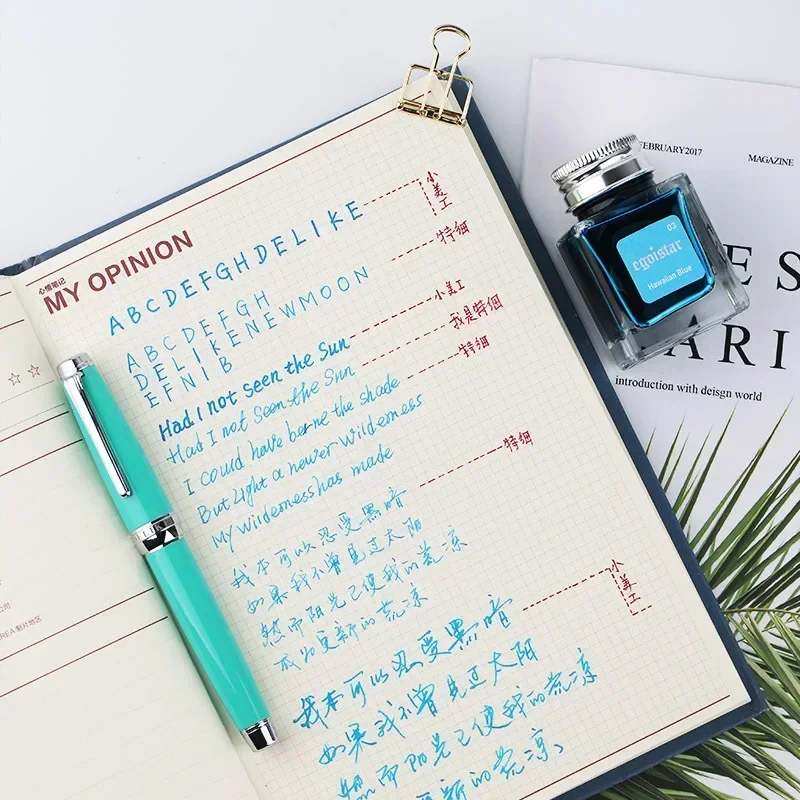 心情笔记
MY OPINION
ABCDEFGHDELIKE
小美工
特细
ABCDEFGH
DELIKENEWMOON
EFNIB
小美工
Had I not seen the Sun
我是特细
Had I not seen the Sun
特细
I could have berne the shade
But Light a newer Wilderness
My Wilderness has made
特细
我本可以忍受黑暗
如果我不曾见过太阳
然而阳光已使我的荒凉
成为更新的荒凉
小美工
我本可以忍受黑暗
如果我不曾见过太阳
然而阳光已使我的荒凉
更新的荒凉
公司
REA 制片地区
FEBRUARY2017
MAGAZINE
03
egoistar
Hawaiian Blue
ES
ARI
introduction with deisgn world